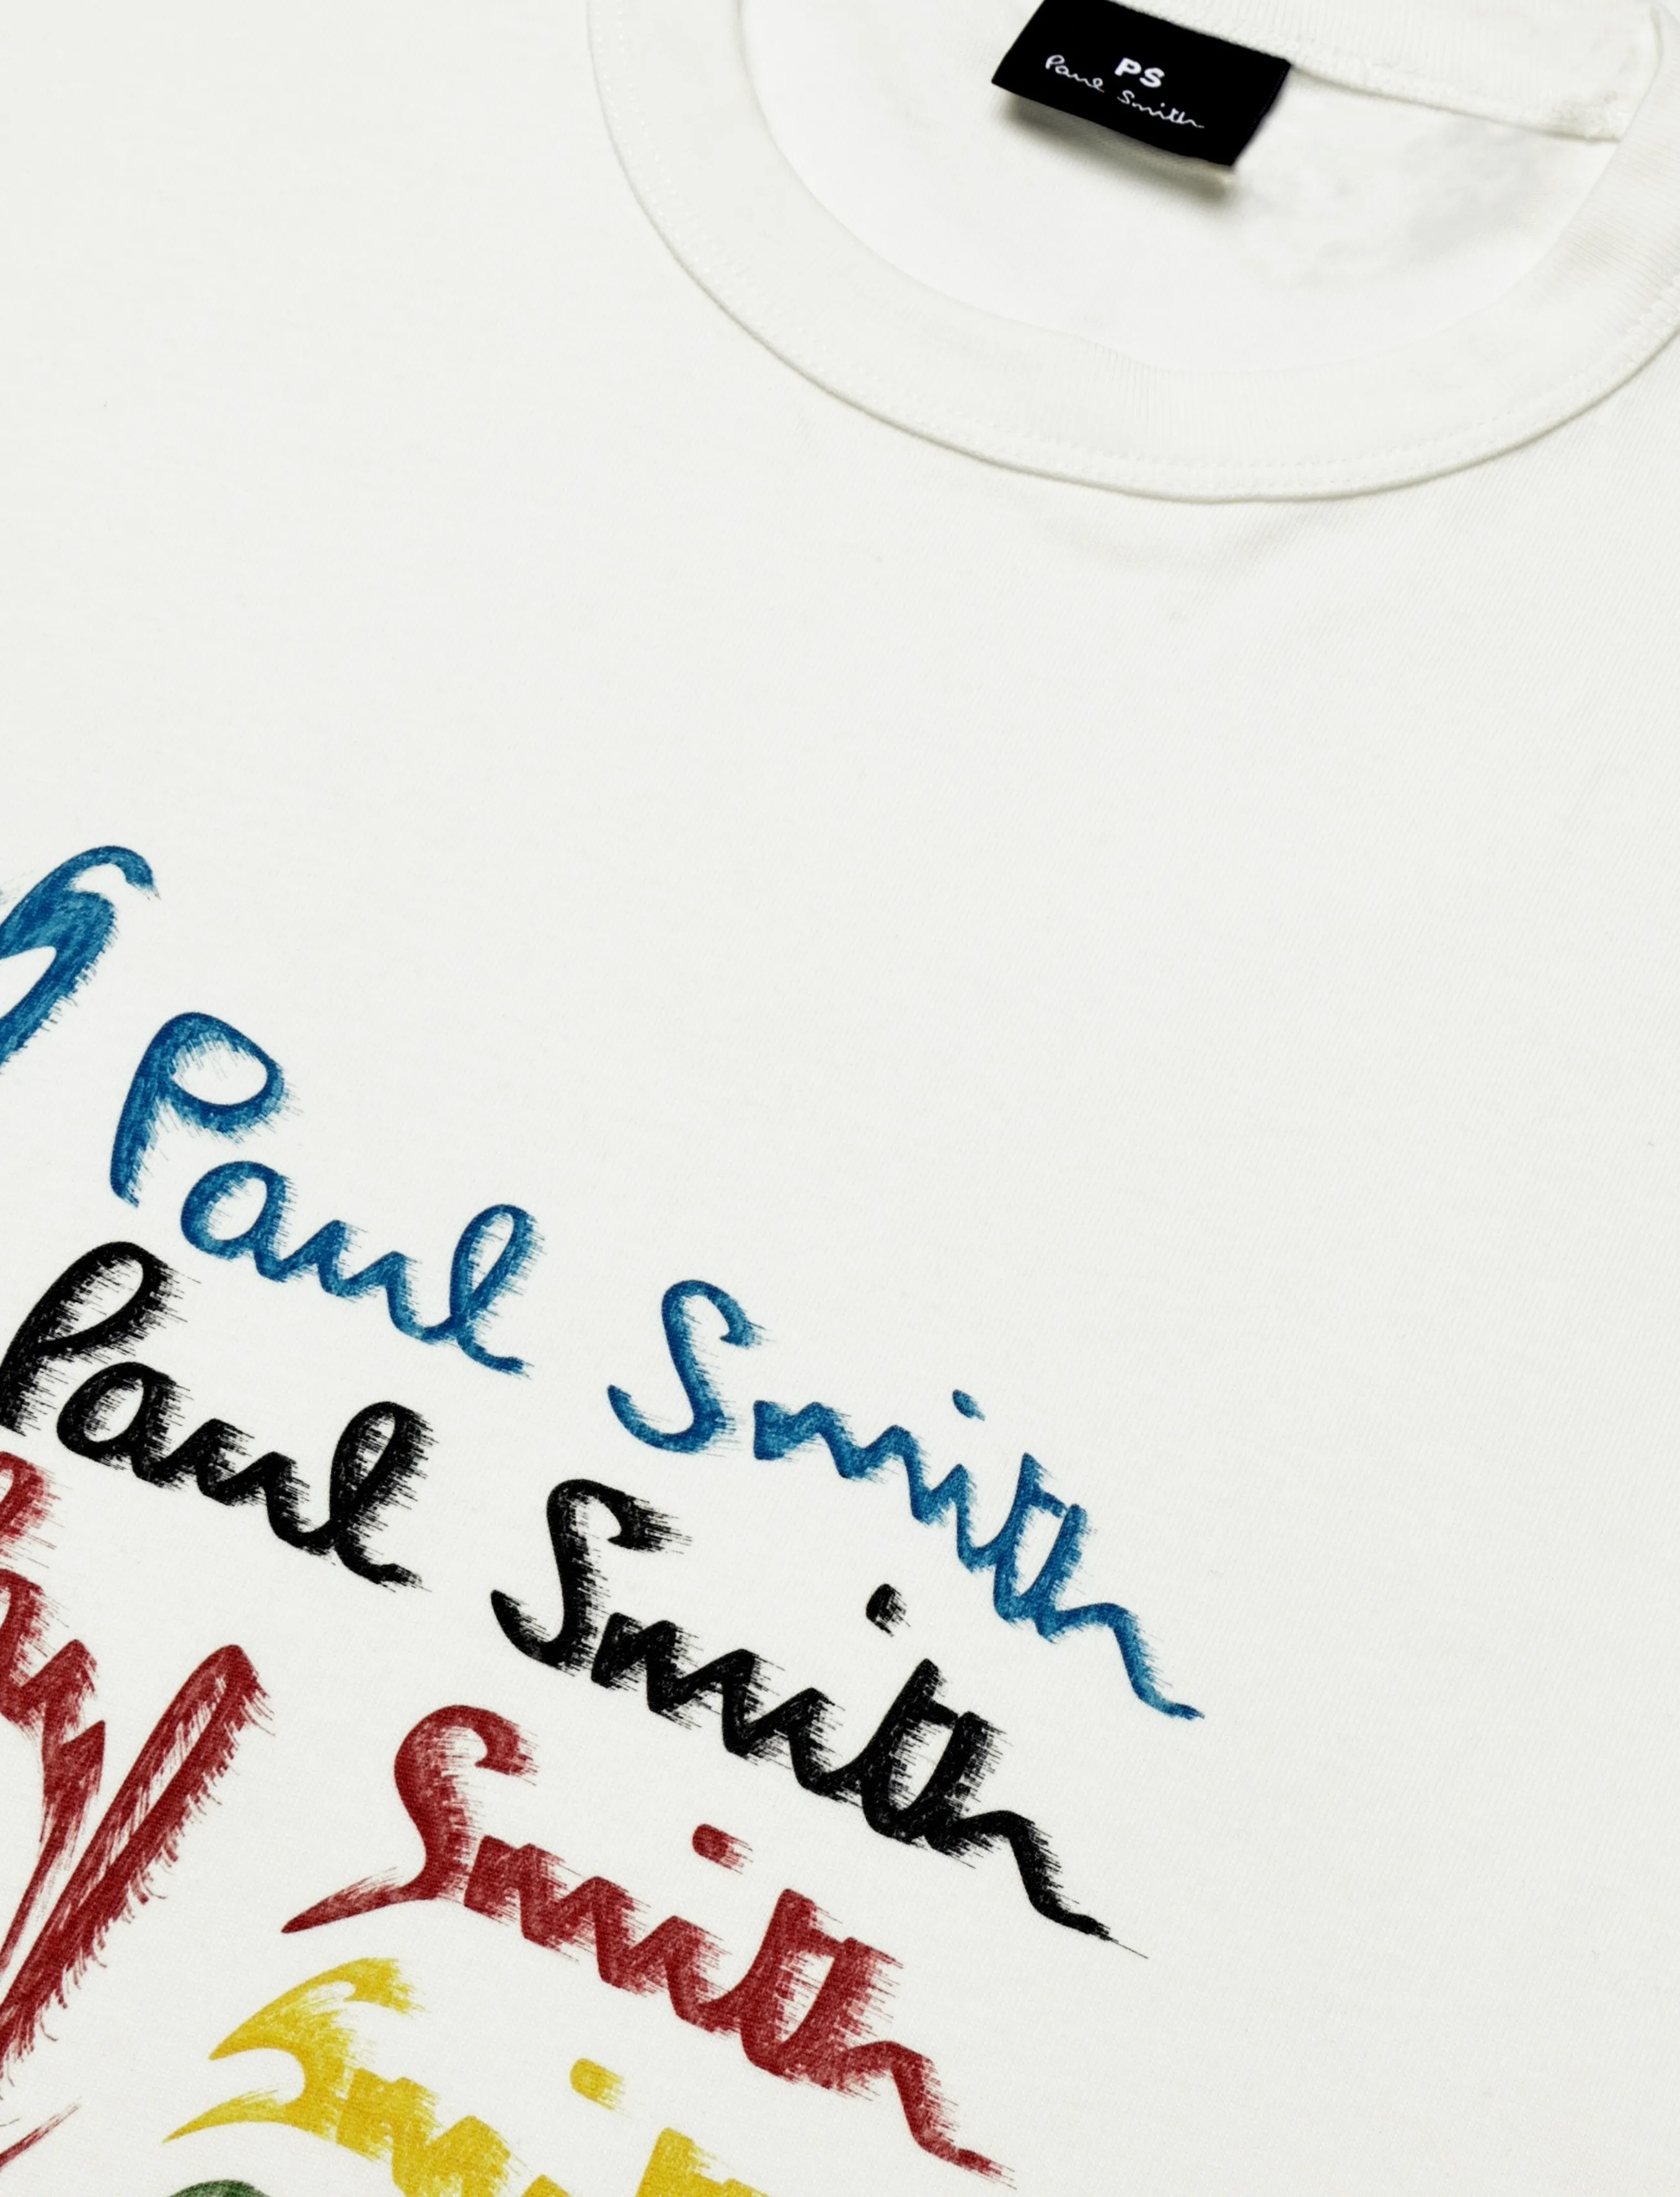 PS
Paul Smith
Paul Smith
Paul Smith
Smith